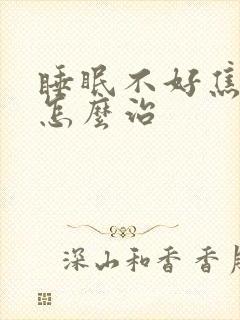 睡眠不好焦
怎麼治
深山和香香